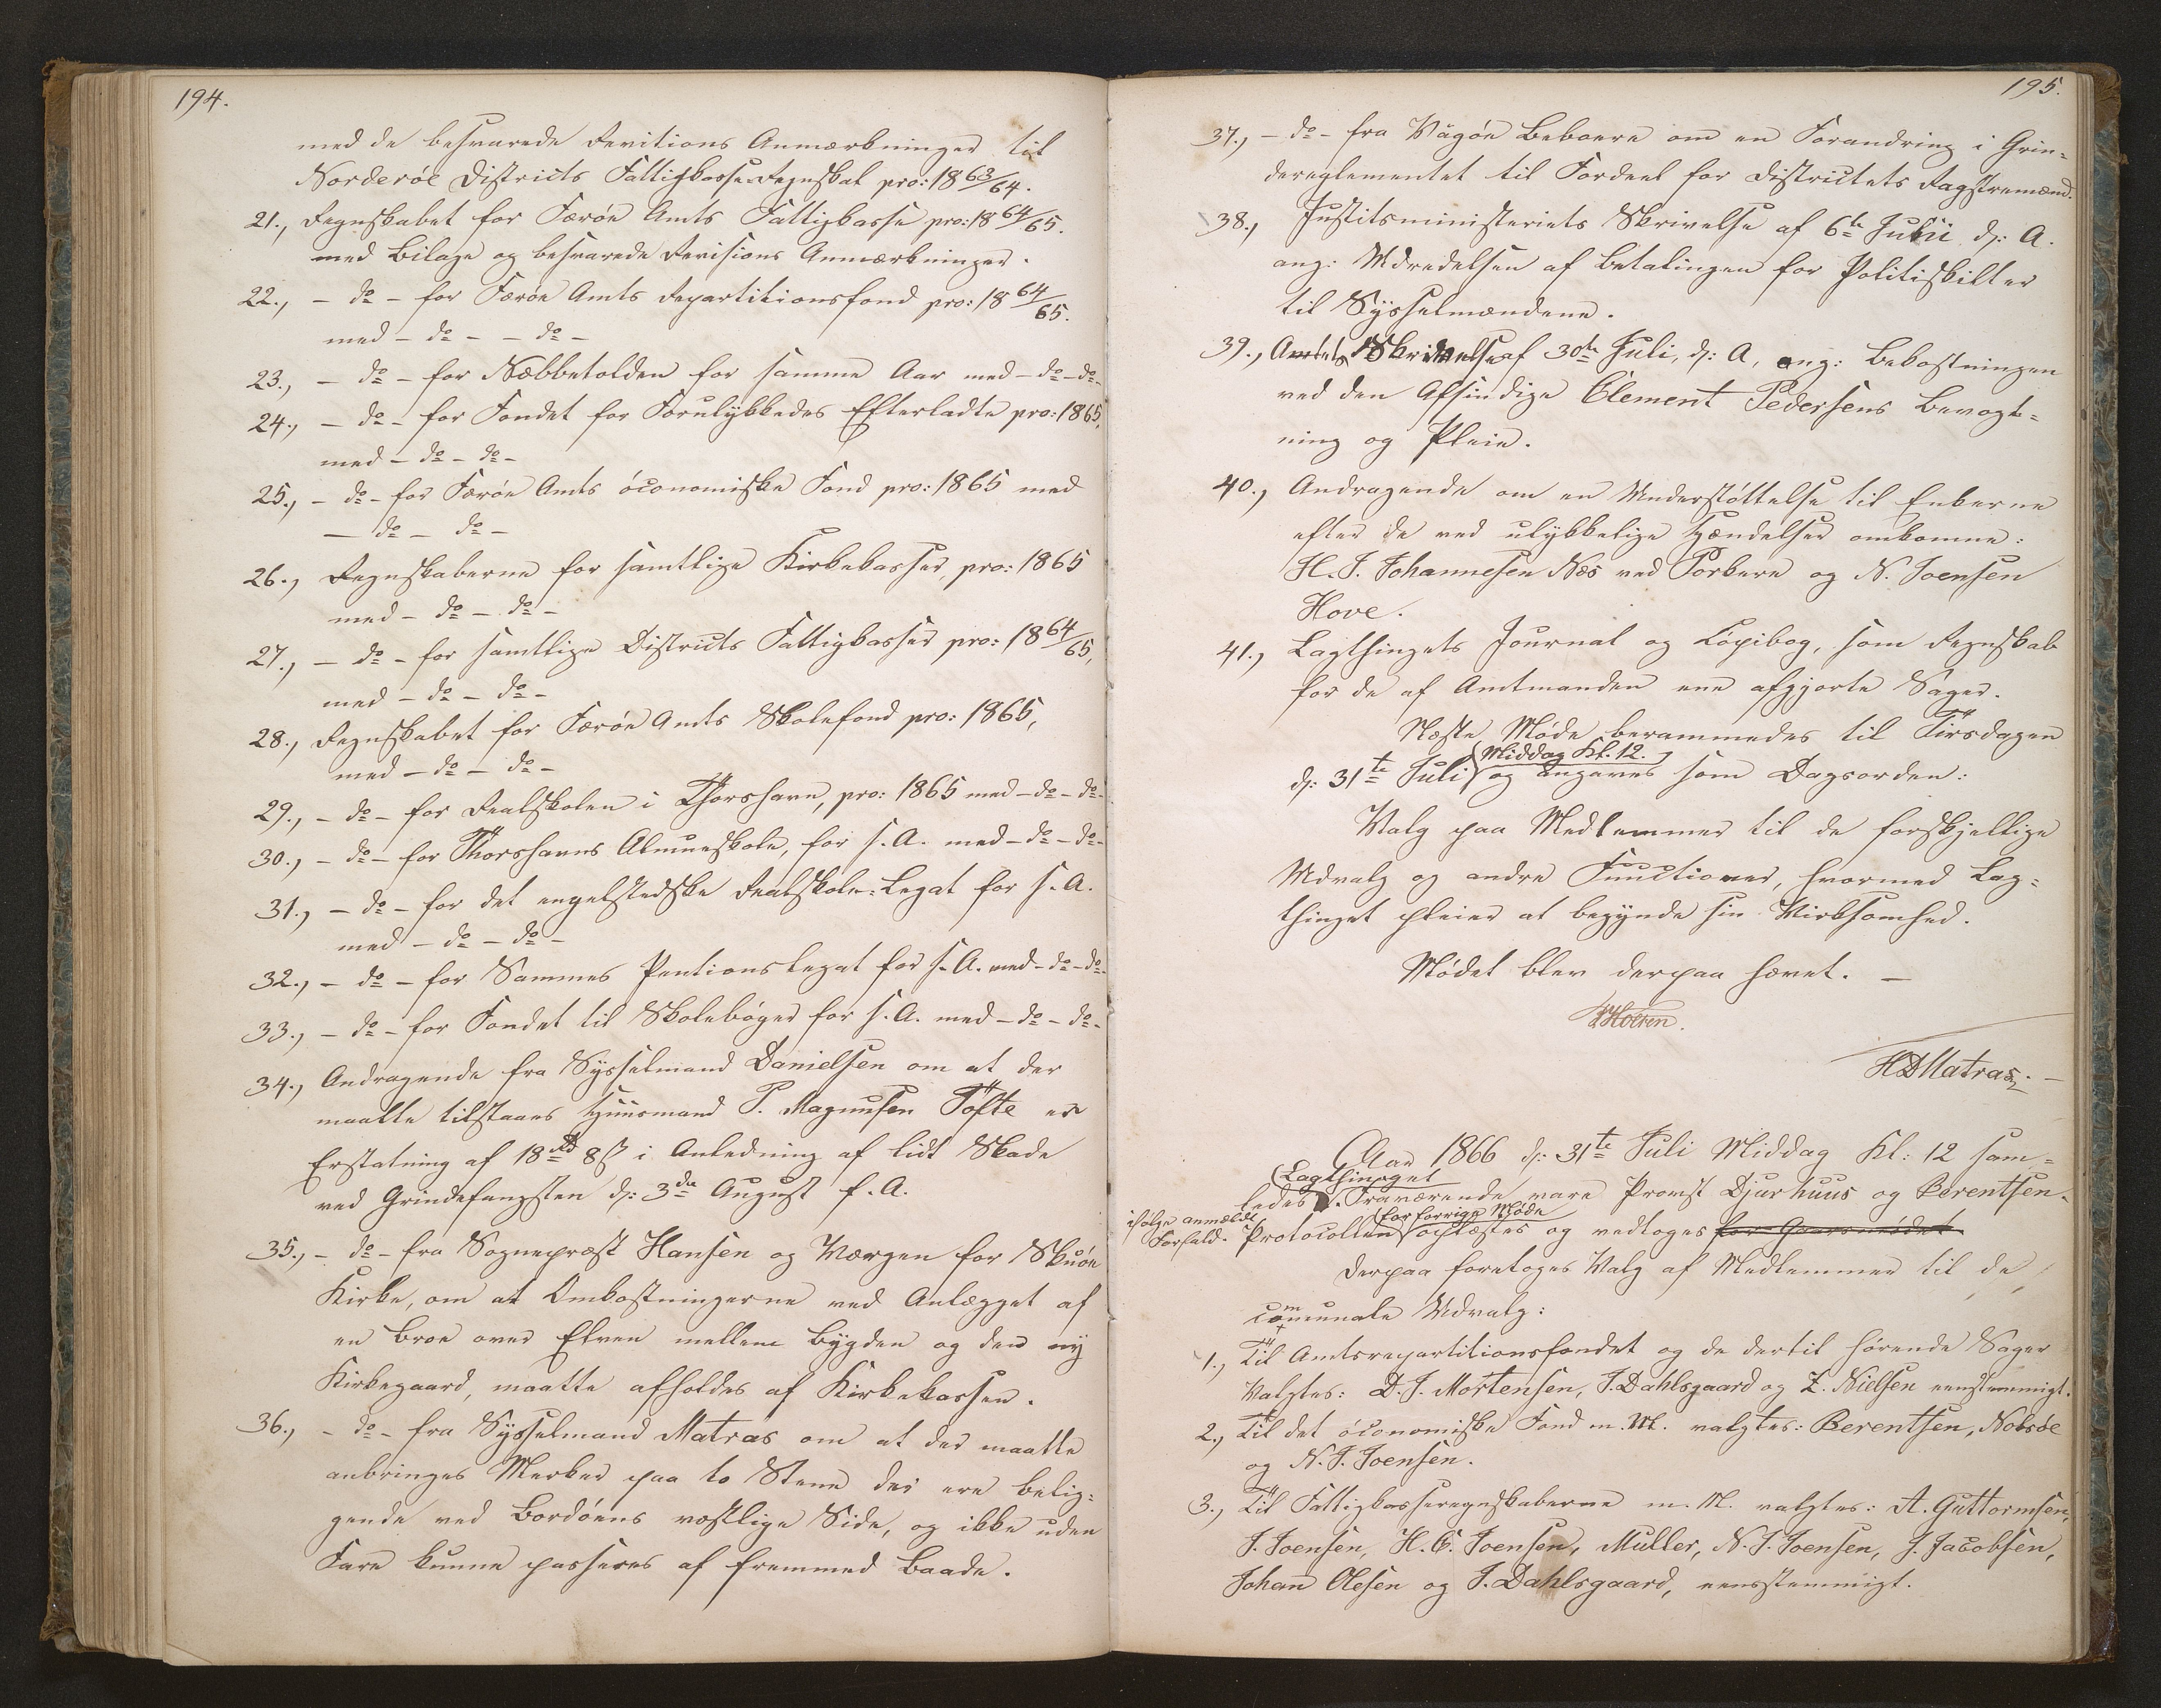 194.
med de besvarede Revitions Anmærkninger til
Norderöe Districts Fattigkasse Regnskab pro: 18 63/64.
21., Regnskabet for Færöe Amts Fattigkasse pro: 18 64/65.
med Bilage og besvarede Revisions Anmærkninger.
22., - do - for Færöe Amts Repartitionsfond pro: 18 64/65.
med - do - - do -
23., - do - for Næbbetolden for samme Aar med - do - do -
24., - do - for Fondet for Forulykkedes Efterladte pro: 1865,
med - do - do -
25., - do - for Færöe Amts öconomiske Fond pro: 1865 med
- do - do -
26., Regnskaberne for samtlige Kirkekasser, pro: 1865
med - do - do -
27., - do - for samtlige Districts Fattigkasser pro: 18 64/65,
med - do - do -
28., Regnskabet for Færöe Amts Skolefond pro: 1865,
med - do - do -
29., - do - for Realskolen i Thorshavn, pro: 1865 med - do - do -
30., - do - for Thorshavns Almueskole, for s. A. med - do - do -
31., - do - for det engelstedske Realskole-Legat for s. A.
med - do - do -
32., - do - for Sammes Pentionslegat for s. A. med - do - do -
33., - do - for Fondet til Skolebøger for s. A. med - do - do -
34., Andragende fra Sysselmand Danielsen om at der
maatte tilstaaes Huusmand P. Magnussen Töfte en
Erstatning af 18 Rd 8 ß i Anledning af lidt Skade
ved Grindefangsten d: 3die August f. A.
35., - do - fra Sognepræst Hansen og Værgen for Skuöe
Kirke, om at Omkostningerne ved Anlægget af
en Broe over Elven mellem Bygden og den ny
Kirkegaard, maatte afholdes af Kirkekassen.
36., - do - fra Sysselmand Matras om at der maatte
anbringes Mærker paa to Stene der ere belig-
gende ved Bordöens vestlige Side, og ikke uden
Fare kunne passeres af fremmed Baade.
195.
37., - do - fra Vågöe Beboere om en Forandring i Grin-
dereglementet til Fordeel for Districtets Fagstremænd.
38., Justitsministeriets Skrivelse af 6te Julii d: A.
ang: Udredelsen af Betalingen for Politiskilter
til Sysselmændene.
39., Amtets Skrivelse af 30te Juli, d: A, ang: Bekostningen
ved den Afsindige Clement Pedersens Bevogt-
ning og Pleie.
40., Andragende om en Understöttelse til Enkerne
efter de ved ulykkelige Hændelser omkomne:
H. J. Johannesen Næs ved Porkere og N. Joensen
Hove.
41., Lagthingets Journal og Copibog, som Regnskab
for de af Amtmanden ene afgjorte Sager.
Næste Møde berammedes til Tirsdagen
Middag Kl. 12.
d: 31te Juli og angaves som Dagsorden:
Valg paa Medlemmer til de forskjellige
Udvalg og andre Functioner, hvormed Lag-
thinget pleier at begynde sin Virksomhed.
Mødet blev derpaa hævet. -
Holten.
HDMatras. -
Aar 1866 d: 31te Juli Middag Kl: 12 sam-
Lagthinget
ledes. Fraværende vare Provst Djurhuus og Berentsen.
ifølge anmeldt
Forfald.
for forrige Møde
Protocollen oplæstes og vedtoges for Gaarsmødet.
Derpaa foretoges Valg af Medlemmer til de
communale Udvalg:
1., Til Amtsrepartitionsfondet og de dertil hørende Sager
Valgtes: D. J. Mortensen, J. Dahlsgaard og Z. Nielsen eenstemmigt.
2., Til det öconomiske Fond m. M. valgtes: Berentsen, Nolsöe
og N. J. Joensen.
3., Til Fattigkasseregnskaberne m. M. valgtes: A. Guttormsen,
J. Joensen, H. C. Joensen, Müller, N. J. Joensen, J. Jacobsen,
Johan Olesen og J. Dahlsgaard, eensstemmigt.